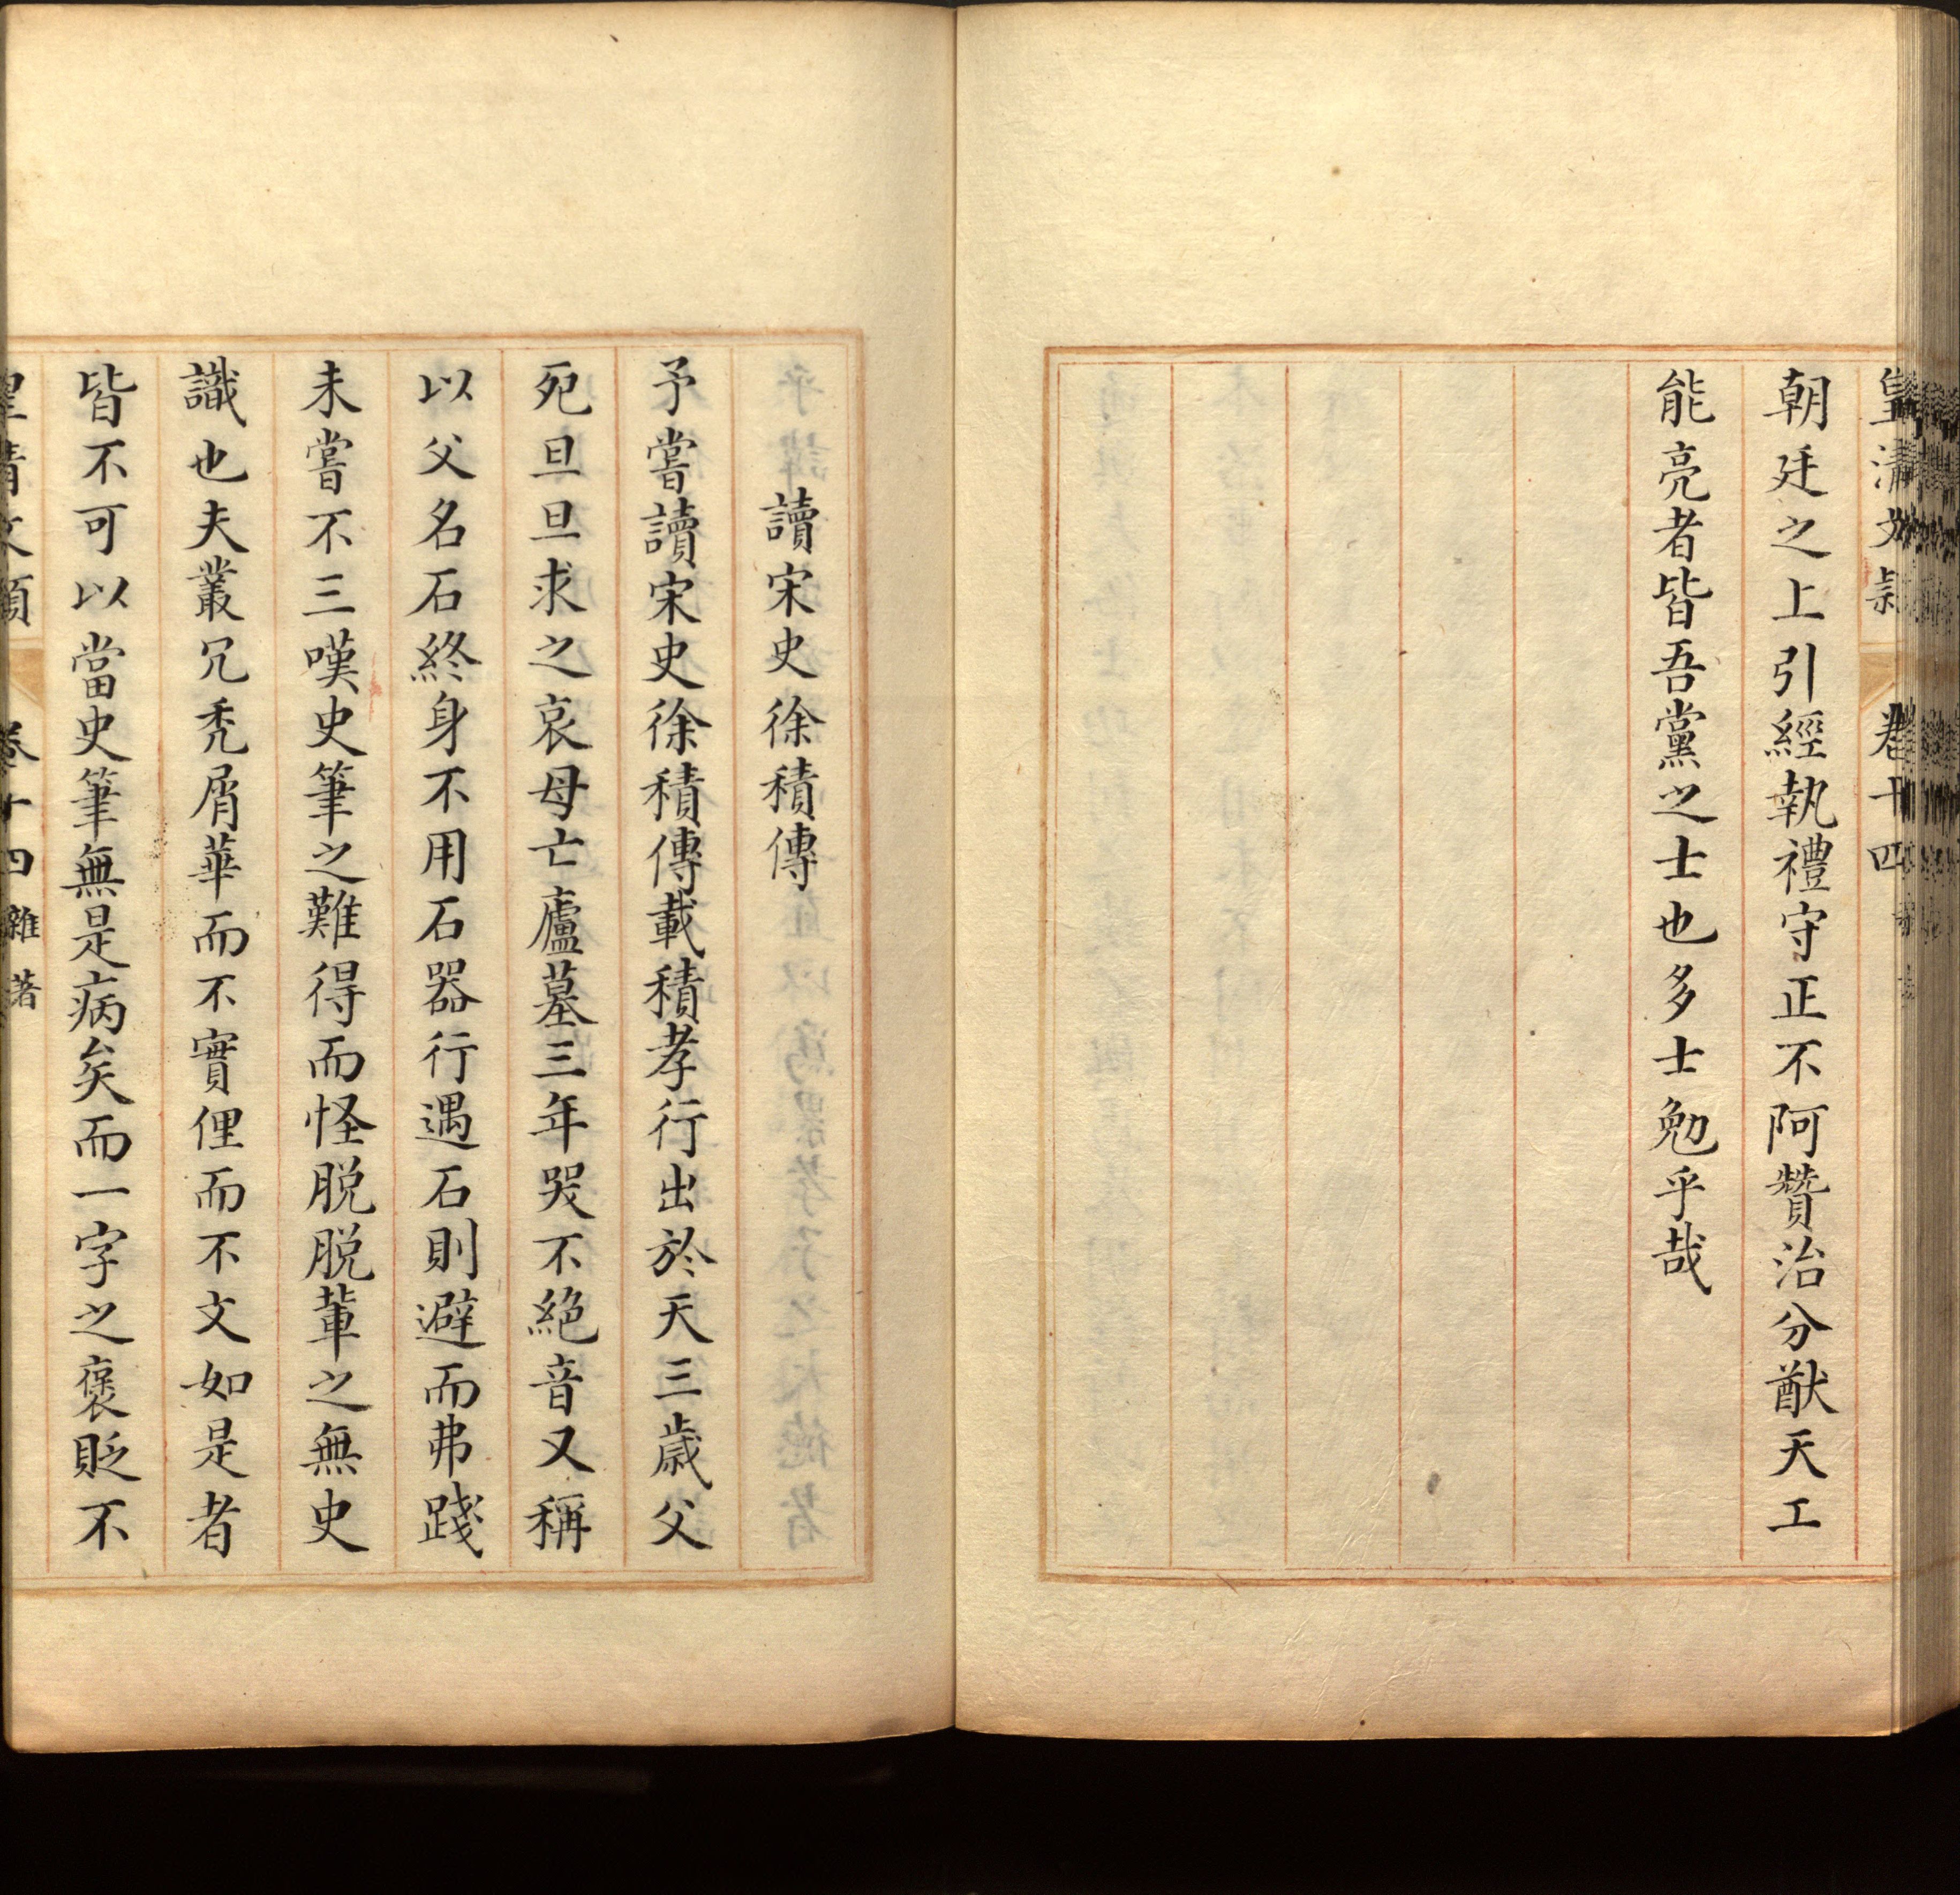 皇清文穎　卷十四
朝廷之上引經執禮守正不阿贊治分猷天工
能亮者皆吾黨之士也多士勉乎哉
讀宋史徐積傳
予嘗讀宋史徐積傳載積孝行出於天三歲父
死旦旦求之哀母亡廬墓三年哭不絕音又稱
以父名石終身不用石器行遇石則避而弗踐
未嘗不三嘆史筆之難得而怪脫脫輩之無史
識也夫叢冗秃屑華而不實俚而不文如是者
皆不可以當史筆無是病矣而一字之褒貶不
皇清文穎　卷十四　雜著